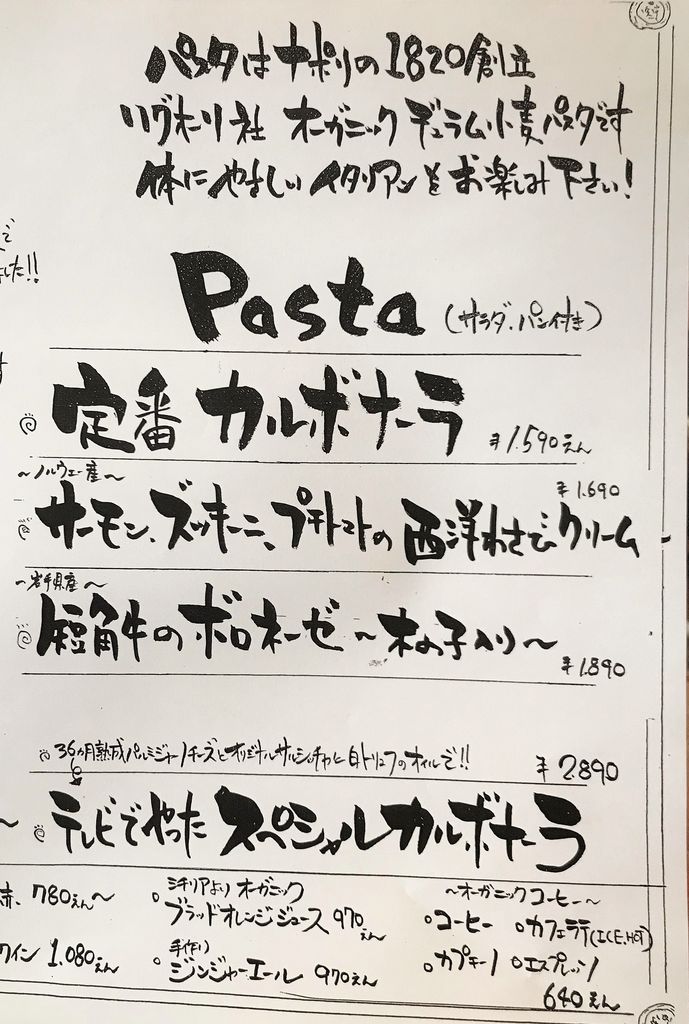 パスタはナポリの1820創立
リグオーリ社 オーガニック デュラム小麦パスタです
体にやさしい イタリアンを お楽しみ下さい!
Pasta (サラダ、パン付き)
定番 カルボナーラ ¥1.590えん
〜ノルウェー産〜
¥1.690
サーモン、ズッキーニ、プチトマトの 西洋わさびクリーム
〜岩手県産〜
短角牛のボロネーゼ〜木の子入り〜
¥1.890
36ヵ月熟成パルミジャーノチーズとオリジナルサルシッチャと白トリュフのオイルで!! ¥2.890
テレビでやった スペシャルカルボナーラ
赤、780えん〜
ワイン 1.080えん
シチリアより オーガニック
ブラッドオレンジジュース 970えん
手作り
ジンジャーエール 970えん
〜オーガニックコーヒー〜
コーヒー カフェラテ(ICE.HOT)
カプチーノ エスプレッソ
640えん